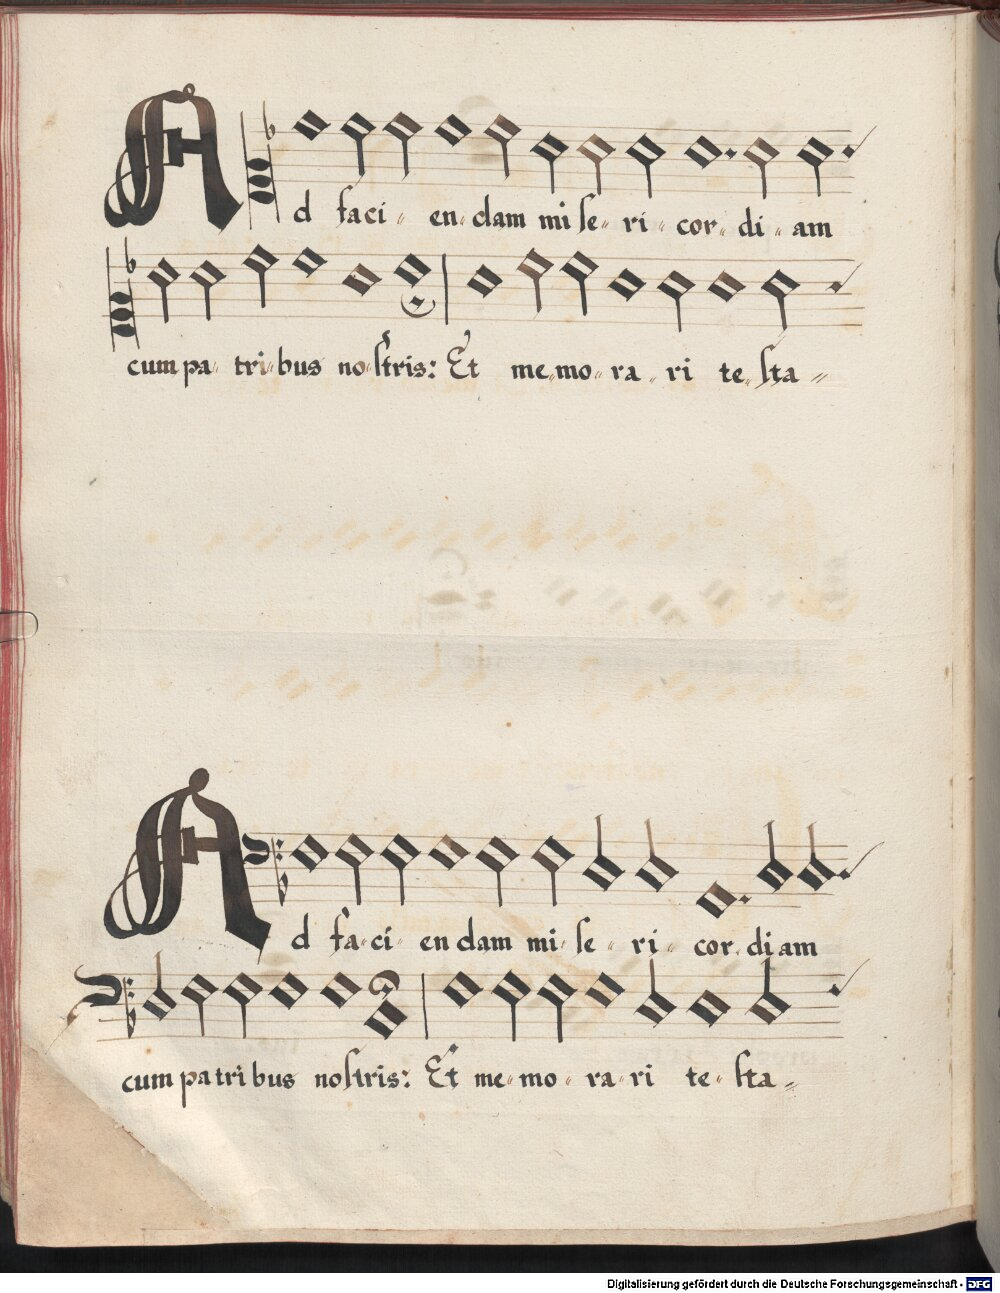 Ad faci- en-dam mi se- ri- cor- di- am
cum pa- tri-bus no-stris: Et me-mo-ra-ri te-sta-
Ad fa-ci- en dam mi-se- ri- cor-di am
cum patribus nostris: Et me-mo-ra-ri te-sta-
Digitalisierung gefördert durch die Deutsche Forschungsgemeinschaft - DFG